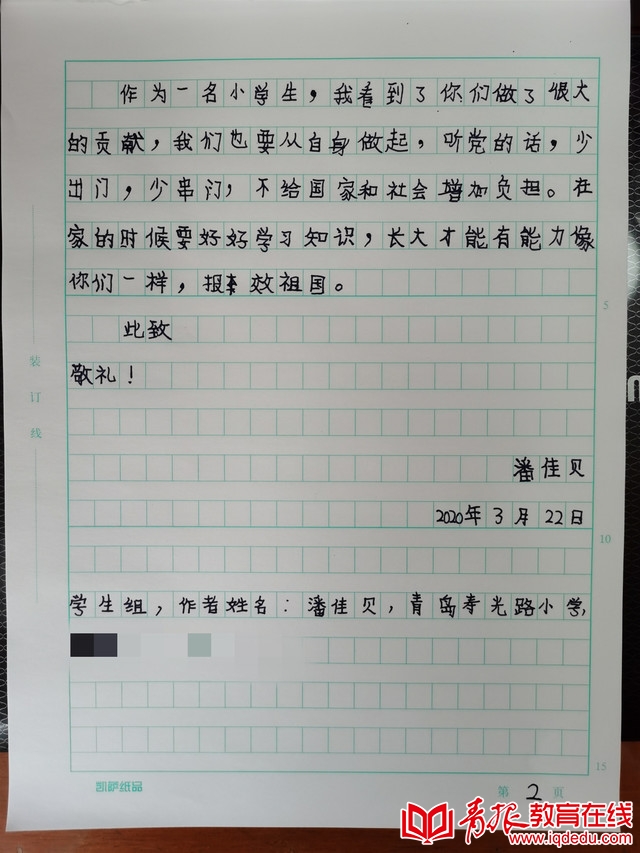 作为一名小学生，我看到了你们做了很大
的贡献，我们也要从自身做起，听党的话，少
出门，少串门，不给国家和社会增加负担。在
家的时候要好好学习知识，长大才能有能力像
你们一样，报效祖国。
此致
敬礼！
潘佳贝
2020年3月22日
学生组，作者姓名：潘佳贝，青岛寿光路小学，
装订线
5
10
15
凯萨纸品
第2页
青报教育在线
www.iqdedu.com